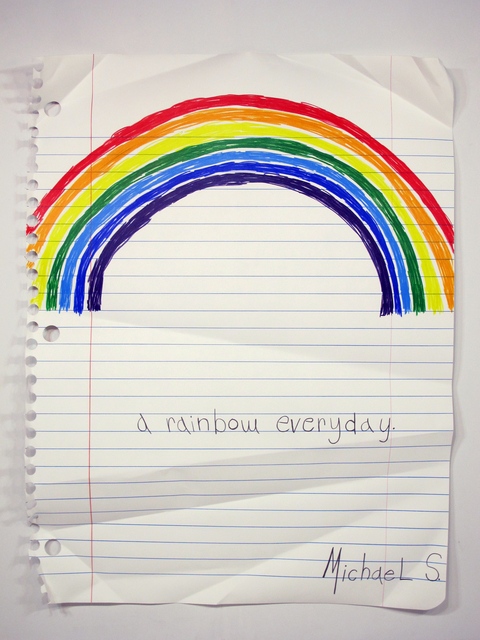 a rainbow everyday.
MichaeL S.